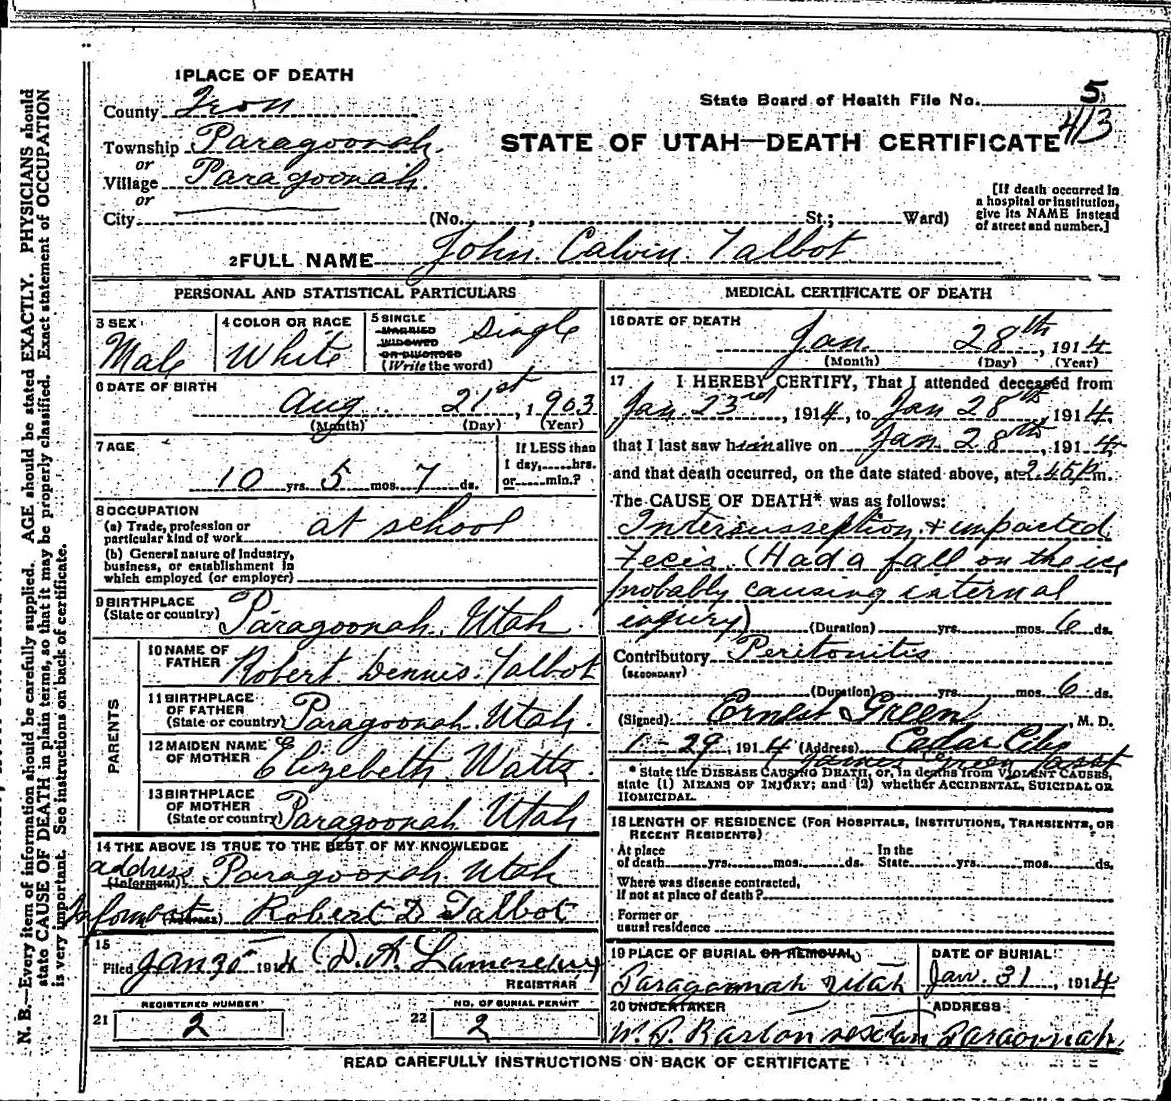 1 PLACE OF DEATH
County Iron
State Board of Health File No. 5
413
Township Paragoonah.
or
Village Paragoonah.
or
City (No. , St.; Ward)
STATE OF UTAH—DEATH CERTIFICATE
[If death occurred in
a hospital or institution,
give its NAME instead
of street and number.]
2 FULL NAME John Calvin Talbot
PERSONAL AND STATISTICAL PARTICULARS
3 SEX
Male
4 COLOR OR RACE
White
5 SINGLE
MARRIED
WIDOWED
OR DIVORCED
(Write the word)
Single
6 DATE OF BIRTH
Aug. 21st, 1903
(Month) (Day) (Year)
7 AGE
10 yrs. 5 mos. 7 ds.
If LESS than
1 day, hrs.
or min.?
8 OCCUPATION
(a) Trade, profession or
particular kind of work at school
(b) General nature of industry,
business, or establishment in
which employed (or employer)
9 BIRTHPLACE
(State or country) Paragoonah. Utah
PARENTS
10 NAME OF
FATHER Robert Dennis Talbot
11 BIRTHPLACE
OF FATHER
(State or country) Paragoonah Utah.
12 MAIDEN NAME
OF MOTHER Elizebeth Watts.
13 BIRTHPLACE
OF MOTHER
(State or country) Paragoonah Utah
14 THE ABOVE IS TRUE TO THE BEST OF MY KNOWLEDGE
address
(Informant) Paragoonah Utah
(Address) Robert D Talbot
15
Filed Jan 30 1914 D. A.
REGISTRAR
REGISTERED NUMBER
21 2
NO. OF BURIAL PERMIT
22 2
MEDICAL CERTIFICATE OF DEATH
16 DATE OF DEATH
Jan. 28th, 1914
(Month) (Day) (Year)
17 I HEREBY CERTIFY, That I attended deceased from
Jan. 23rd, 1914, to Jan 28th, 1914,
that I last saw him alive on Jan. 28th, 1914
and that death occurred, on the date stated above, at 2.45 P. m.
The CAUSE OF DEATH* was as follows:
Intercusseption & impacted
Feces. (Had a fall on the ice
probably causing internal
injury) (Duration) yrs. mos. 6 ds.
Contributory Peritonitis
(SECONDARY)
(Duration) yrs. mos. 6 ds.
(Signed) Ernest Green, M. D.
1-29, 1914 (Address) Cedar City
James Green
* State the DISEASE CAUSING DEATH, or, in deaths from VIOLENT CAUSES,
state (1) MEANS OF INJURY; and (2) whether ACCIDENTAL, SUICIDAL OR
HOMICIDAL.
18 LENGTH OF RESIDENCE (FOR HOSPITALS, INSTITUTIONS, TRANSIENTS, OR
RECENT RESIDENTS)
At place
of death yrs. mos. ds.
In the
State yrs. mos. ds.
Where was disease contracted,
if not at place of death?
Former or
usual residence
19 PLACE OF BURIAL OR REMOVAL
Paragoonah Utah
DATE OF BURIAL
Jan. 31, 1914
20 UNDERTAKER
W. P. Barton sexton
ADDRESS
Paragoonah
READ CAREFULLY INSTRUCTIONS ON BACK OF CERTIFICATE
N. B.—Every item of information should be carefully supplied. AGE should be stated EXACTLY. PHYSICIANS should
state CAUSE OF DEATH in plain terms, so that it may be properly classified. Exact statement of OCCUPATION
is very important. See instructions on back of certificate.